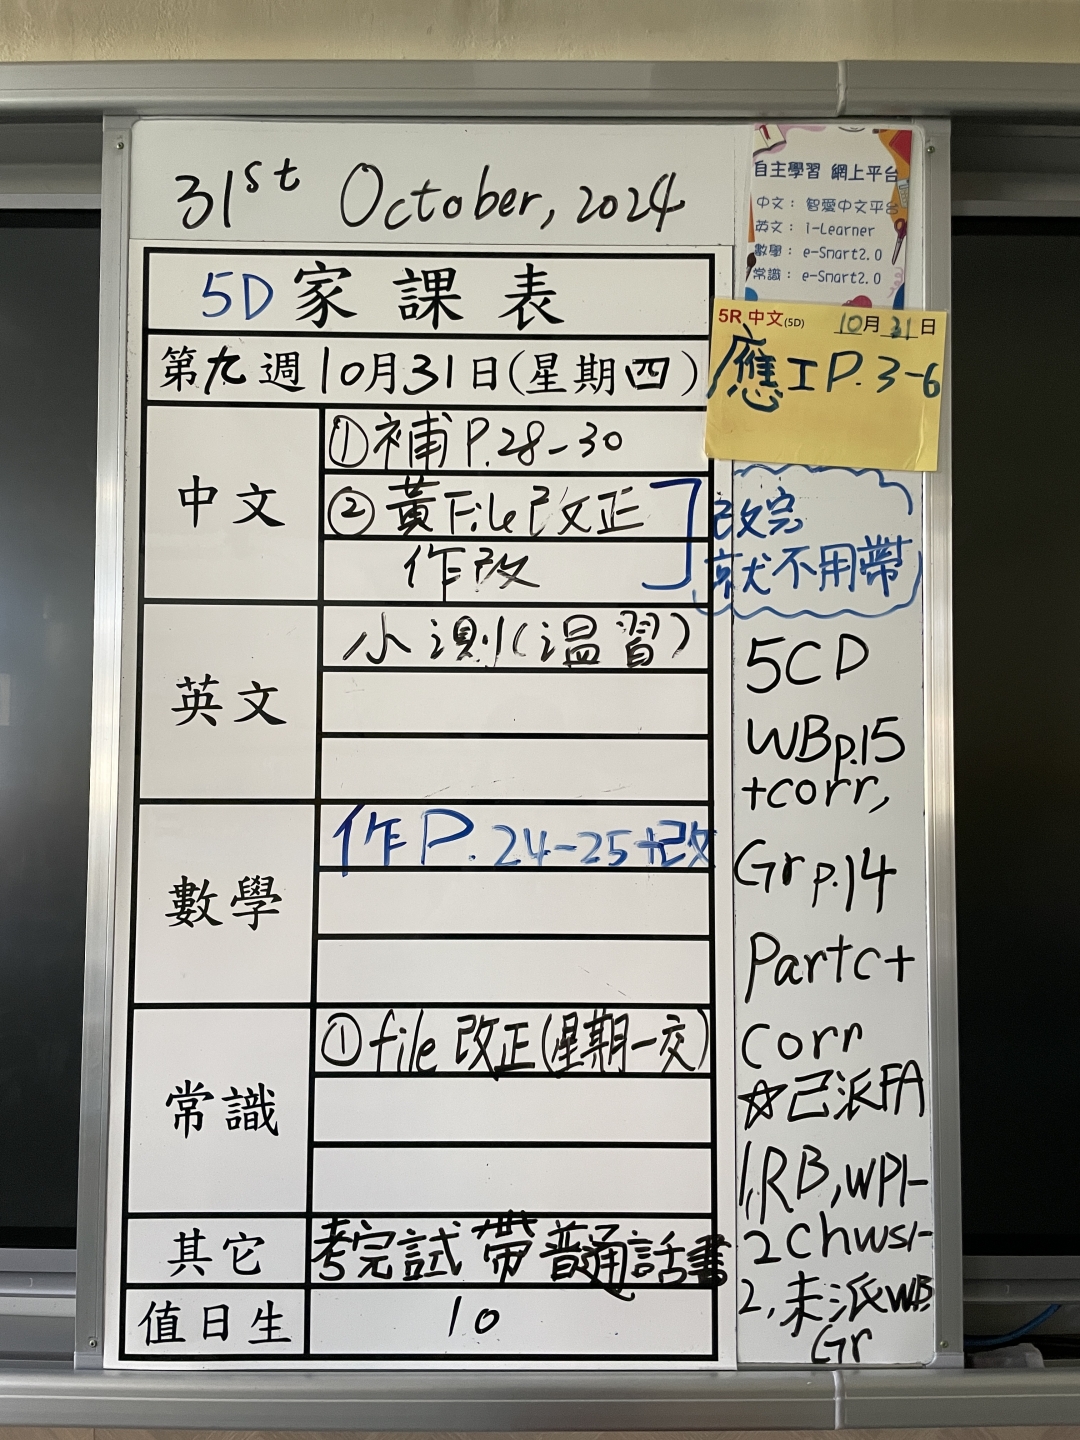 31st October, 2024
5D 家課表
第九週10月31日(星期四)
中文
①補P.28-30
②黃File改正
作改
英文
小測(溫習)
數學
作P.24-25+改
常識
①file改正(星期一交)
其它
考完試帶普通話書
值日生
10
自主學習 網上平台
中文：智愛中文平台
英文：i-Learner
數學：e-Smart2.0
常識：e-Smart2.0
5R 中文(5D) 10月31日
應工P.3-6
改完
就不用帶
5CD
WBp.15
+corr,
Gr p.14
Part C+
corr
☆已派FA
1,RB,WP1-
2 Chws1-
2,未派WB
Gr